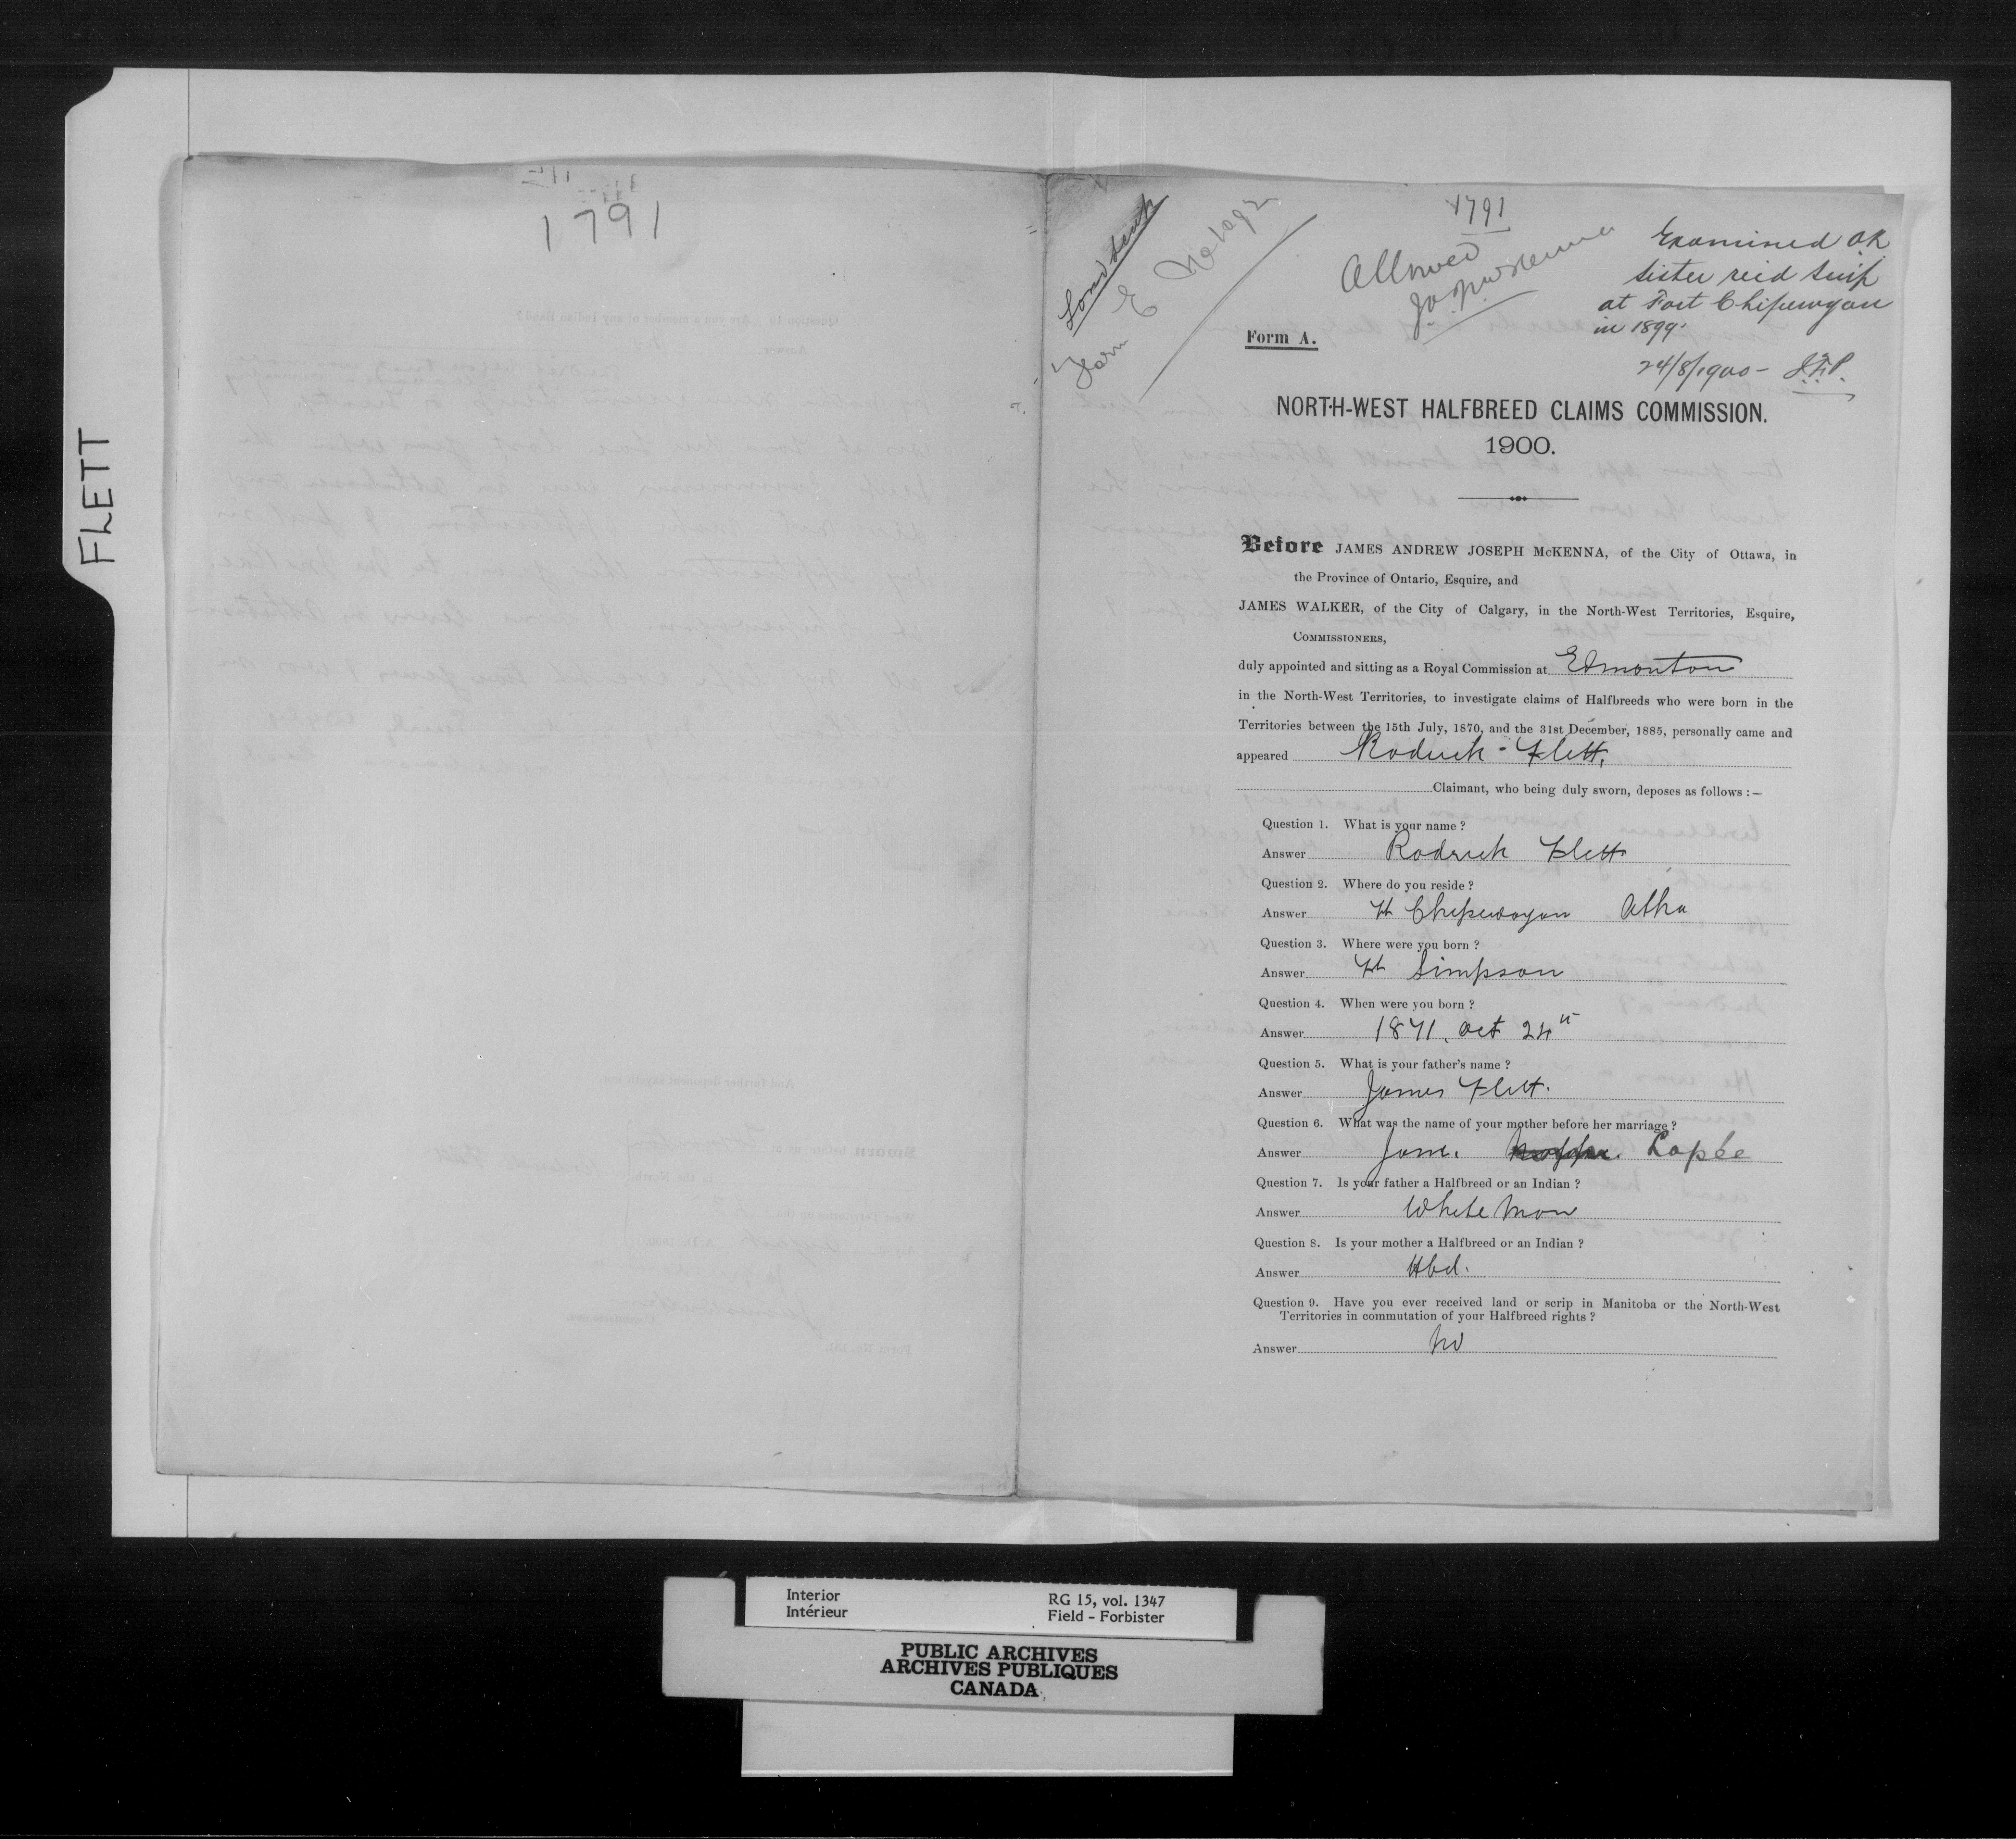 FLETT
1791
Land Scrip
Form E No
1791
Allowed
J.A.J. McKenna
Examined OK
sister recd scrip
at Fort Chipewyan
in 1899.
24/8/1900 - J.F.P.
Form A.
NORTH-WEST HALFBREED CLAIMS COMMISSION.
1900.
Before JAMES ANDREW JOSEPH McKENNA, of the City of Ottawa, in
the Province of Ontario, Esquire, and
JAMES WALKER, of the City of Calgary, in the North-West Territories, Esquire,
COMMISSIONERS,
duly appointed and sitting as a Royal Commission at Edmonton
in the North-West Territories, to investigate claims of Halfbreeds who were born in the
Territories between the 15th July, 1870, and the 31st December, 1885, personally came and
appeared Rodrick - Flett,
Claimant, who being duly sworn, deposes as follows :—
Question 1. What is your name ?
Answer Rodrick Flett
Question 2. Where do you reside ?
Answer Ft Chipewayan Atha
Question 3. Where were you born ?
Answer Ft Simpson
Question 4. When were you born ?
Answer 1871, Oct 24th
Question 5. What is your father's name ?
Answer James Flett.
Question 6. What was the name of your mother before her marriage ?
Answer Jane. Lapée
Question 7. Is your father a Halfbreed or an Indian ?
Answer White Man
Question 8. Is your mother a Halfbreed or an Indian ?
Answer Hbd.
Question 9. Have you ever received land or scrip in Manitoba or the North-West
Territories in commutation of your Halfbreed rights ?
Answer No
Interior
Intérieur
RG 15, vol. 1347
Field - Forbister
PUBLIC ARCHIVES
ARCHIVES PUBLIQUES
CANADA